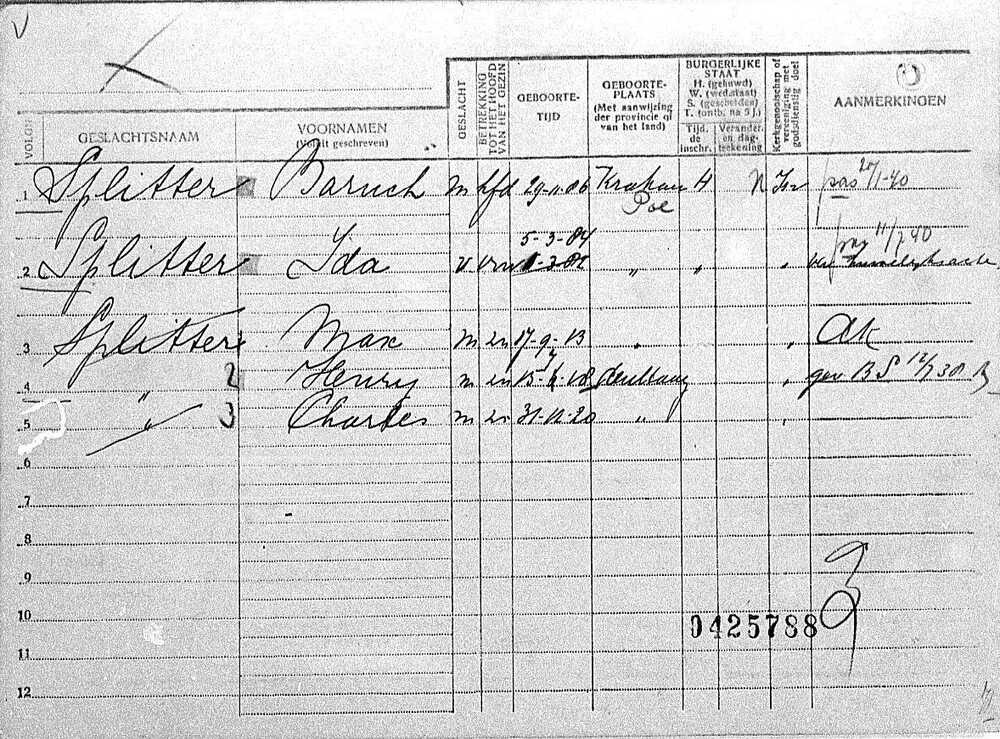 V
VOLGN
GESLACHTSNAAM
VOORNAMEN
(Voluit geschreven)
GESLACHT
BETREKKING TOT HET HOOFD VAN HET GEZIN
GEBOORTE-
TIJD
GEBOORTE-
PLAATS
(Met aanwijzing
der provincie of
van het land)
BURGERLIJKE
STAAT
H. (gehuwd)
W. (wed.staat)
S. (gescheiden)
T. (ontb. na 5 j.)
Tijd.
de
inschr.
Verander.
en dag-
teekening
Kerkgenootschap of vereeniging met godsdienstig doel
AANMERKINGEN
1 Splitter Baruch m hfd 29-11-86 Krakau H N Isr pas 27/1-40
Pol
5-3-84 pas 11/7 40
2 Splitter Ida v vrw " " "
3 Splitter 1 Max m zn 17-9-13 " " ak
4 " 2 Henry m zn 18 " gev B S 12/7 38
5 " 3 Charles m zn 31-12-20 " "
6
7
8
9
10
0425788
11
12